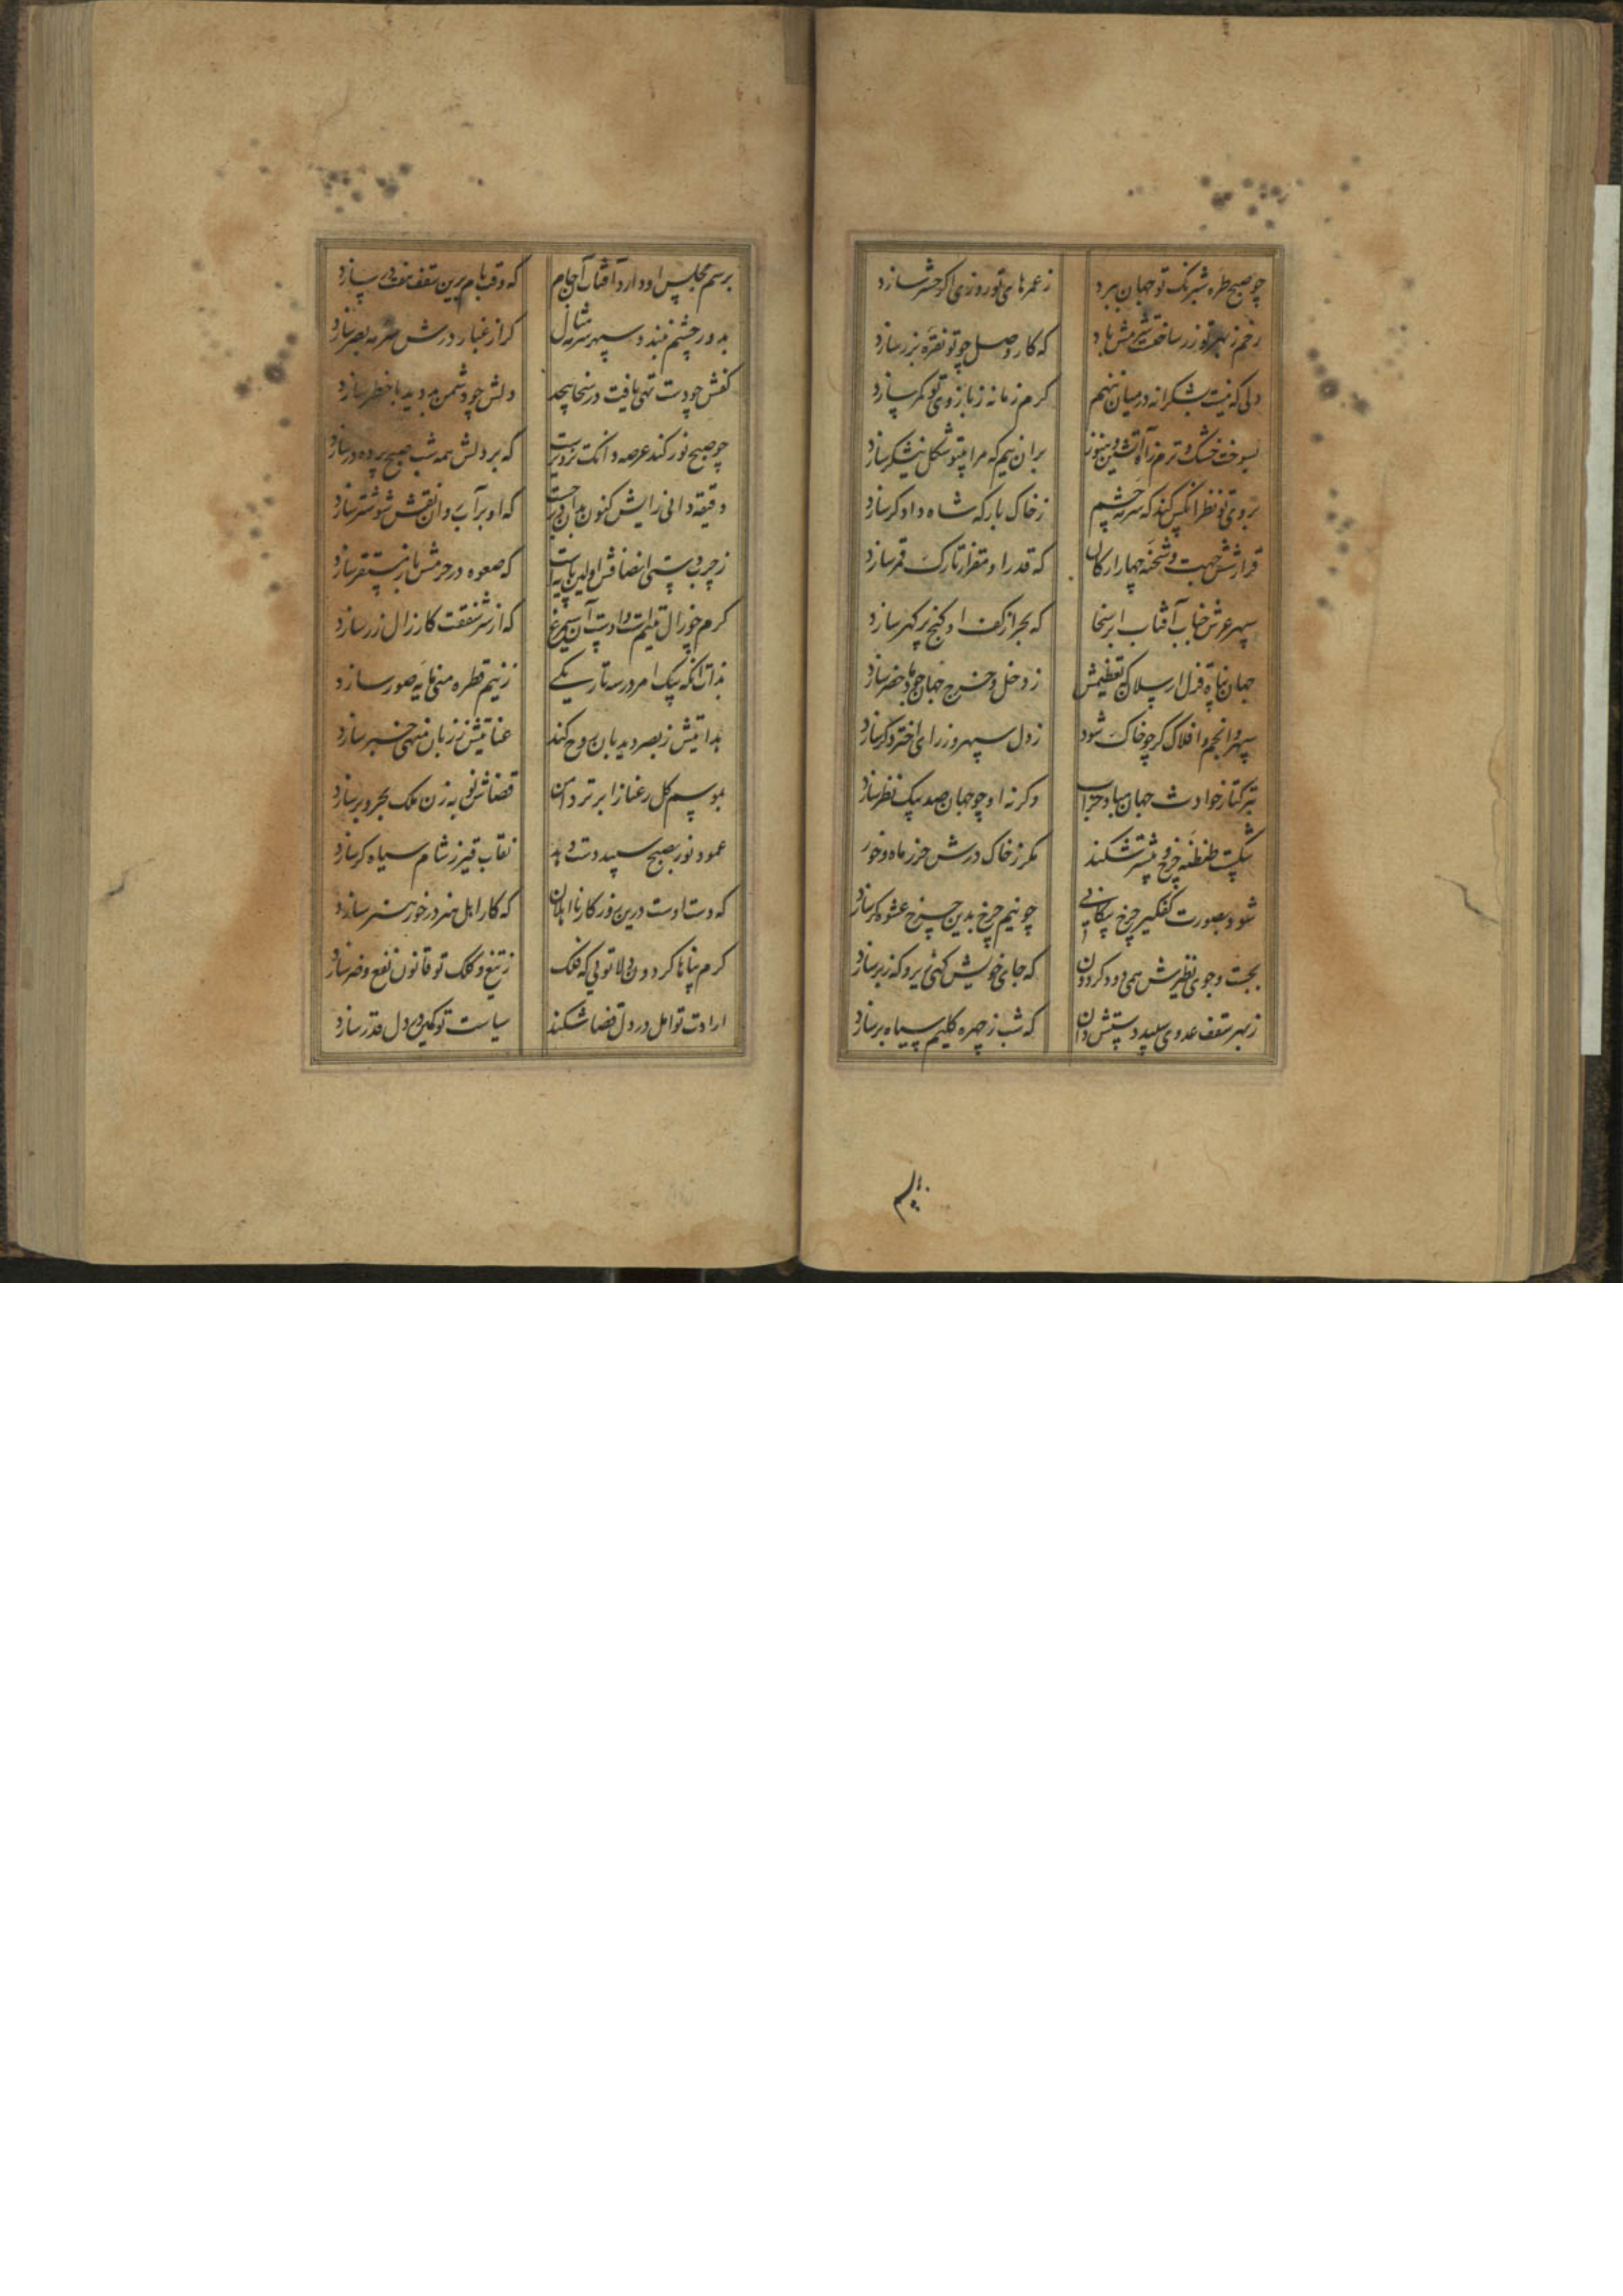 چو صبح طره شبرنگ تو جهان ببرد
ز عمرهای تو روزی اگر حشر سازد
رخم ز بهر تو زر ساختست
که کار وصل چو تو نقره بزر سازد
دلی که نیست بشکرانه در میان ننهم
کرم زمانه ز بازوی تو کمر سازد
بسوخت خشک و ترم ز آه آتشین و هنوز
بر آن نیم که مرا بیتو شکل نیشکر سازد
بروی تو نظر آنکس کند که سرمه چشم
ز خاک بارکه شاه دادکر سازد
قرار شش جهت و شحنه چهار ارکان
که قدر او مقر از تارک قمر سازد
سپهر عرش جناب آفتاب ابر سخا
که بحر از کف او کنج پر کهر سازد
جهان پناه قزل ارسلان که تعظیمش
ز دخل و خرج جهان
سپهر و انجم و افلاک کر چو خاک شود
ز دل سپهر و ز رای اختر دکر سازد
ز ترکتاز حوادث جهان مبادا خراب
وکرنه او چو جهان صد بیک نظر سازد
شکست طنطنه چرخ و بیشتر شکند
مکر ز خاک درش حرز ماه و خور
شود بصورت کفکیر چرخ پیکانی
چو نیم چرخ بدین چرخ عشوه کر سازد
بجست و جوی نظیرش همی دود کردون
که جای خویش کهی زیر و که زبر سازد
ز بهر سقف عدوی سپید دستش دان
که شب ز چهره کلیم سیاه بر سازد
برسم
برسم مجلس او دارد آفتاب آن جام
که وقت بام برین سقف هفت در سازد
بدور چشم نبندد سپهر سرمه مثال
کر از غبار درش سرمه بصر سازد
کفش چو دست تهی یافت در سخا پیچد
دلش چو دشمن بد دید با خطر سازد
چو صبح نور کند عرصه
که بر دلش همه شب صبح پرده در سازد
دقیقه دانی رایش کنون بدان
که او بر آب روان نقش شوشتر سازد
ز چرب دستی انصافش اولین پایه است
که صعوه در حرمش باز مستقر سازد
کرم چو زال یتیم است و اوست آن سیمرغ
که از سر شفقت کار زال زر سازد
بدانکه بیک امر در سه تاریکی
ز نیم قطره منی مایه صور سازد
بدایتش ز بصر دیدبان روح کند
عنایتش ز زبان منهی خبر سازد
بموسم کل رعنا ز ابر تر دامن
قضاش
عمود نور بصبح سپید دست دهد
نقاب قیر ز شام سیاه کر سازد
که دست اوست درین روزکار نااهلان
که کار اهل هنر در خور هنر سازد
کرم پناها کردون دلا تویی که فلک
ز تیغ و کلک تو قانون نفع و ضر سازد
ارادت تو امل در دل قضا شکند
سیاست تو کمین در دل قدر سازد